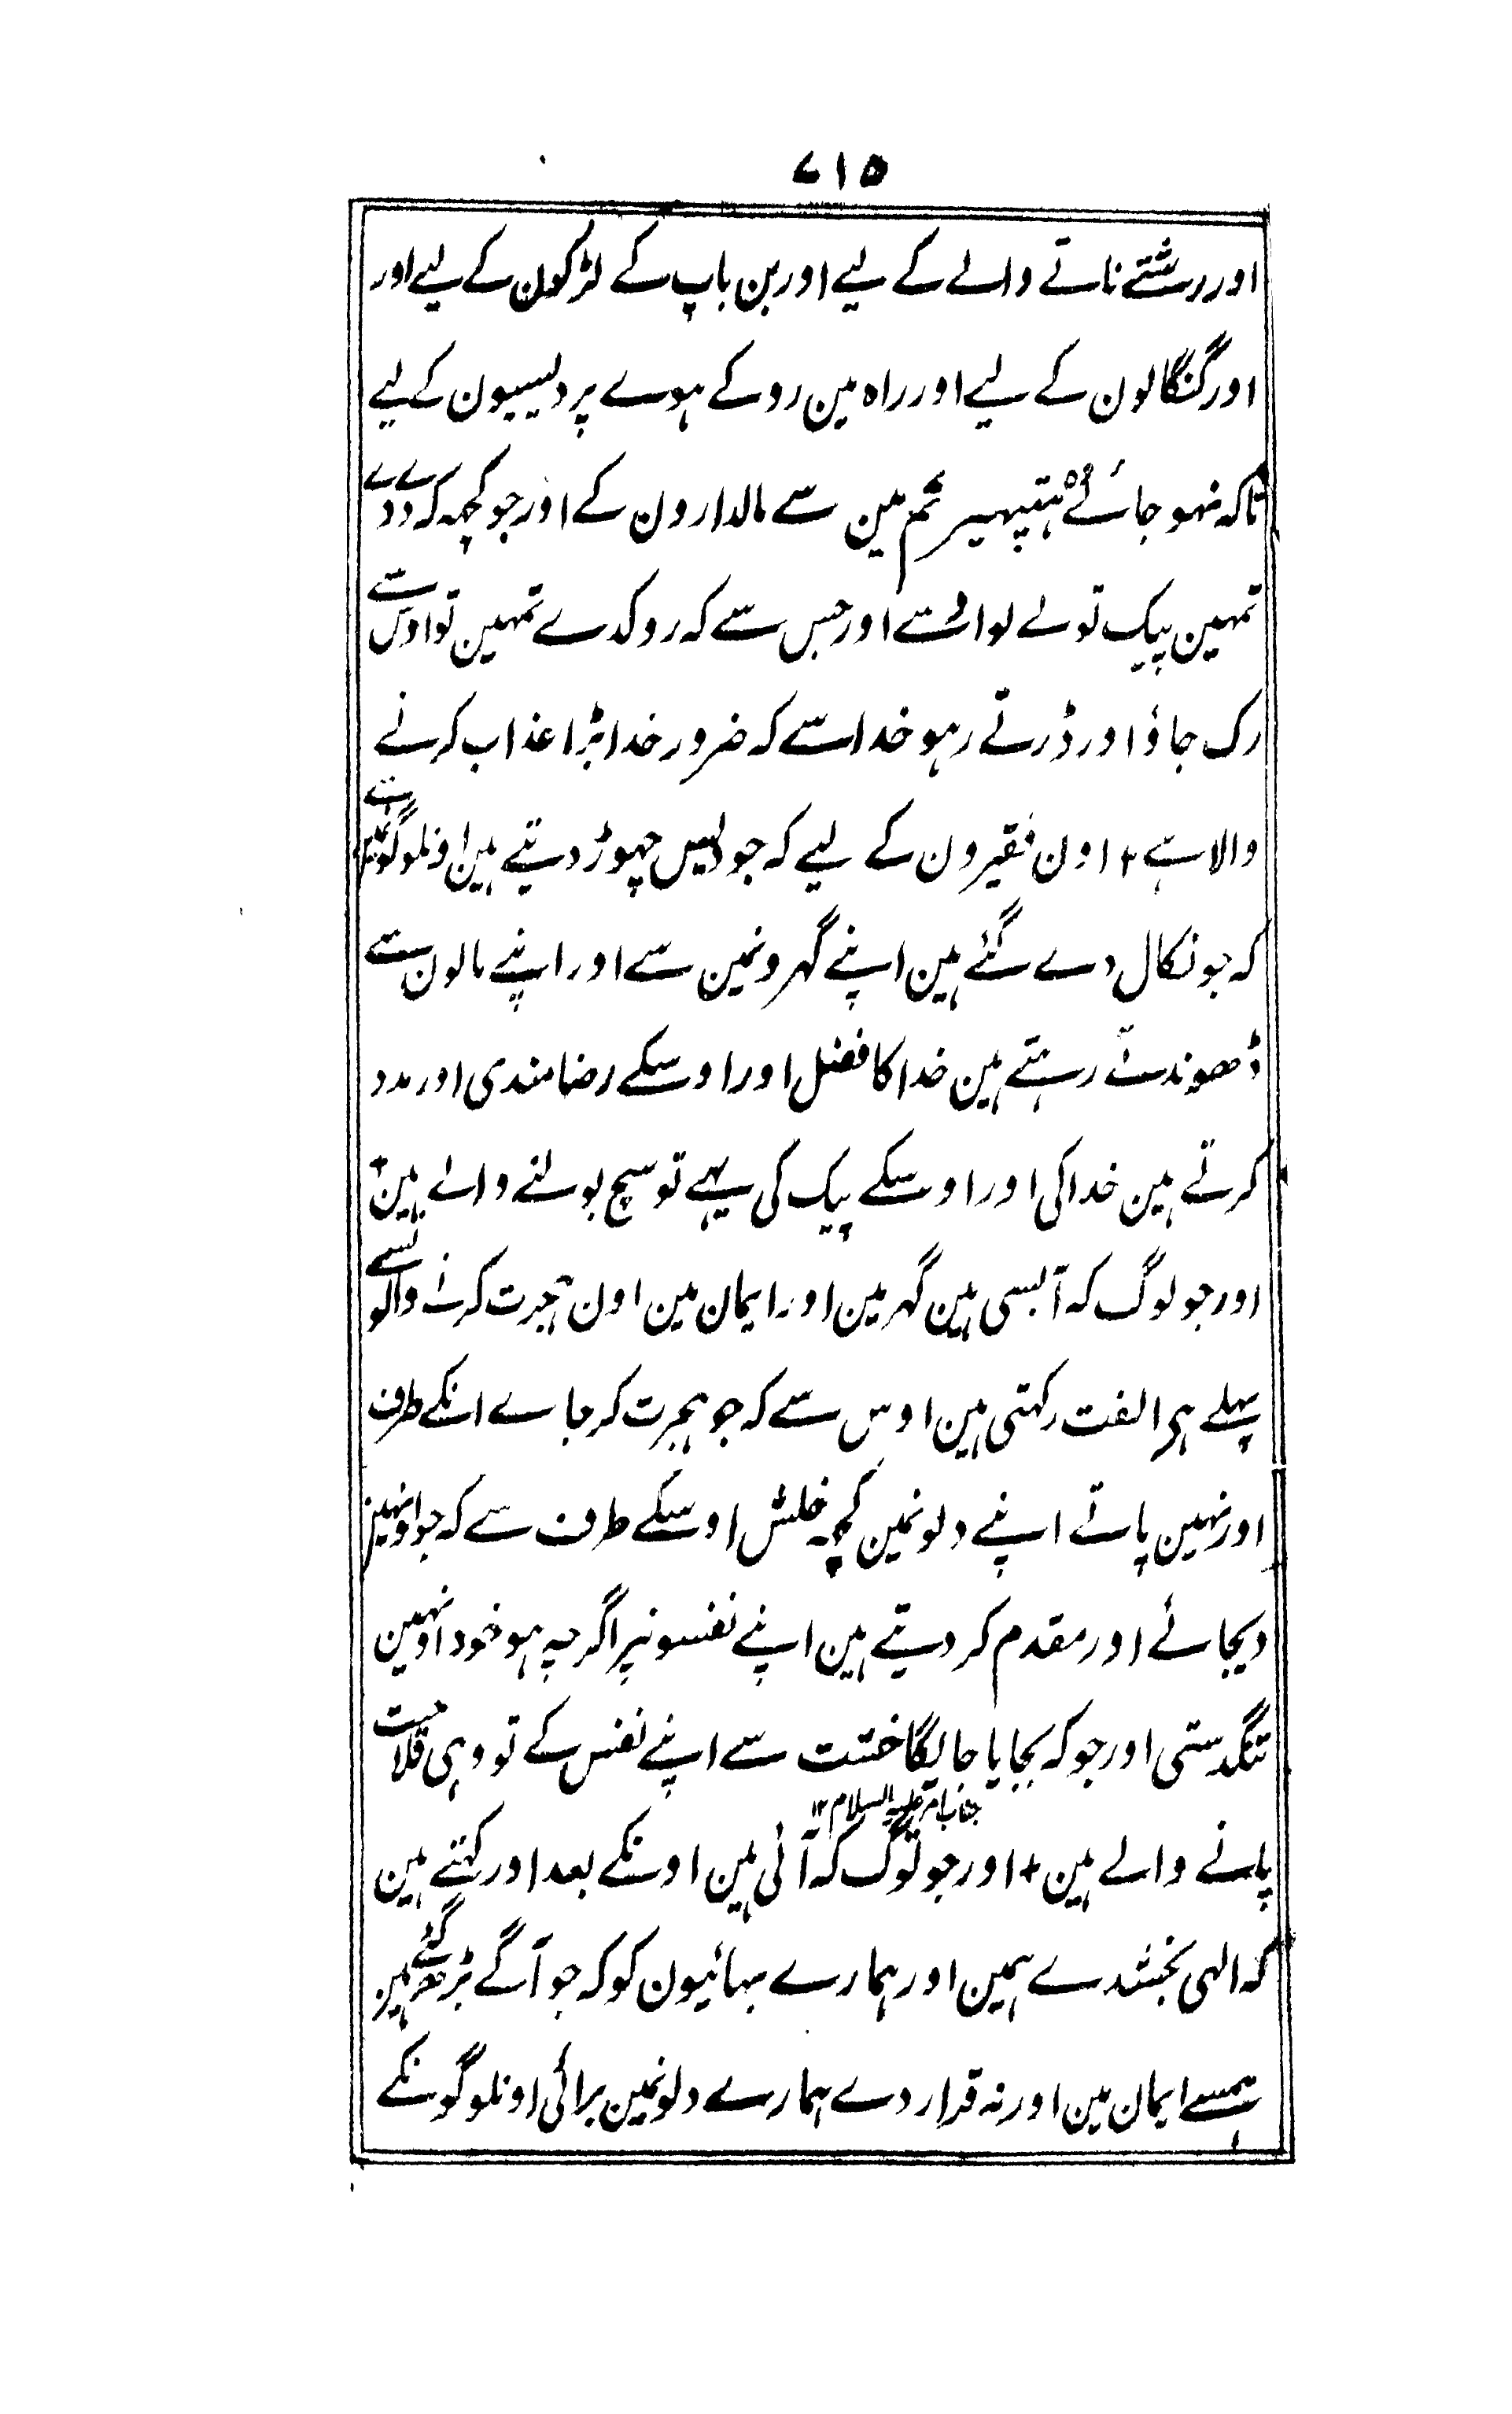 ۷۱۵
اور رشتے ناتے والے کے لیے اور بن باپ کے لڑکون کے لیے اور
اور کنگالون کے لیے اور راہ مین روکے ہوے پردیسیون کے لیے
تاکہ نہو جائے وہ ہتپہیر تم مین سے مالدارون کے اور جو کچہہ کہ دے دے
تمہین پیک تو لے لو اوسے اور جس سے کہ روکدے تمہین تو اوس سے
رک جاؤ اور ڈرتے رہو خدا سے کہ ضرور خدا بڑا عذاب کرنے
والا ہے + اون فقیرون کے لیے کہ جو دیس چہوڑ دیتے ہین اونلوگونمین سے
کہ جو نکال دے گئے ہین اپنے گہرونمین سے اور اپنے مالون سے
ڈھوندتے رہتے ہین خدا کا فضل اور اوسکے رضامندی اور مدد
کرتے ہین خدا کی اور اوسکے پیک کی یہے تو سچ بولنے والے ہین +
اور جو لوگ کہ آبسی ہین گہر مین اور ایمان مین اون ہجرت کرنے والونسے
پہلے ہی الفت رکہتی ہین اوس سے کہ جو ہجرت کر جاے انکے طرف
اور نہین پاتے اپنے دلونمین کچہہ خلش اوسکے طرف سے کہ جو اونہین
دیجائے اور مقدم کر دیتے ہین اپنے نفسونپر اگرچہ ہو خود اونہین
تنگدستی اور جو کہ بچایا جائیگا خسّت سے اپنے نفس کے تو وہی فلاحت
جناب امیر علیہ السلام ۱۲
پانے والے ہین + اور جو لوگ کہ آئی ہین اونکے بعد اور کہتے ہین
کہ الہی بخشدے ہمین اور ہمارے بہائیون کو کہ جو آگے بڑھ گئے ہین
ہمسے ایمان مین اور نہ قرار دے ہمارے دلونمین برائی اونلوگونکے